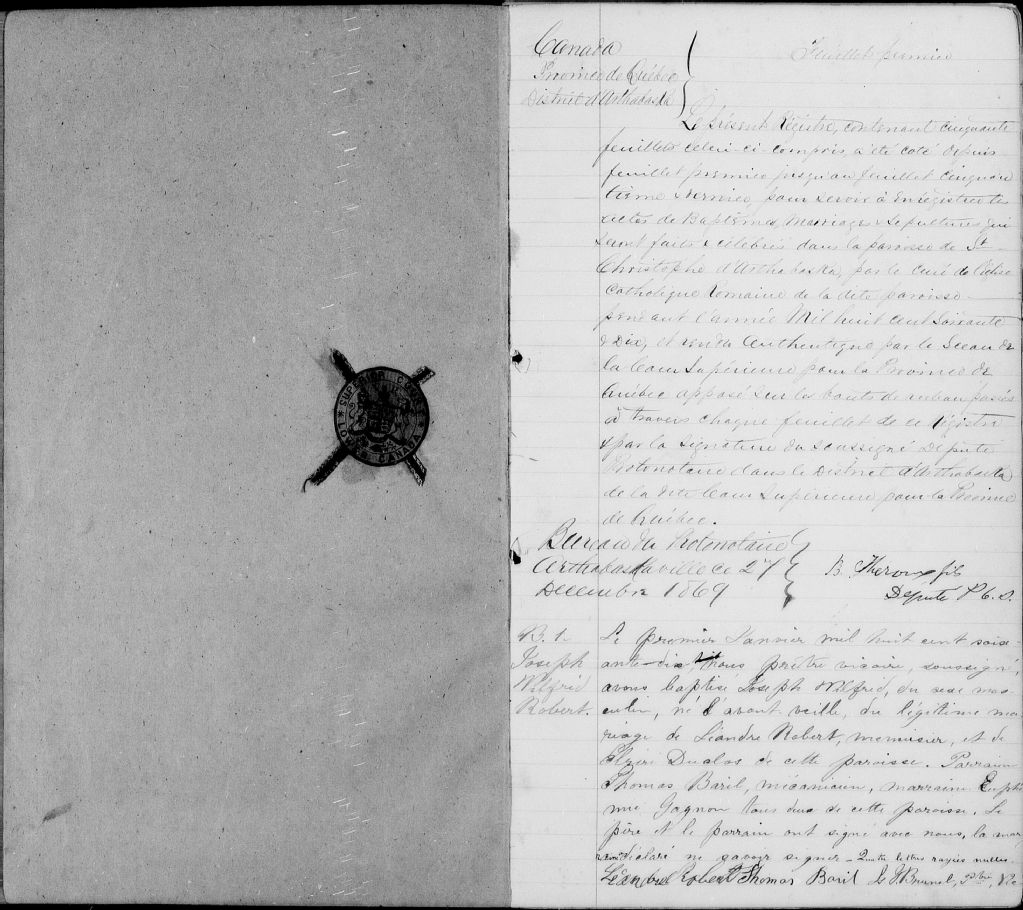 SUPERIOR COURT
LOWER CANADA
Canada
Province de Québec
District d'Arthabaska
Feuillet premier
Le présent Régistre, contenant cinquante
feuillets celui-ci compris, a été coté depuis
feuillet premier jusqu'au feuillet cinquan
tième dernier, pour servir à Enrégistrer les
actes de Baptêmes, Marriages & Sépultures qui
seront faits & célébrés dans la paroisse de St
Christophe d'Arthabaska, par le curé de l'église
Catholique Romaine de la dite paroisse
pendant l'année Mil huit cent Soixante
& Dix, et rendu Authentique par le Sceau de
la Cour Supérieure pour la Province de
Québec apposé sur les bouts de ruban passés
à travers chaque feuillet de ce Régistre
& par la signature du soussigné Député
Protonotaire dans le District d'Arthabaska
de la dite Cour Supérieure pour la Province
de Québec.
Bureau du Protonotaire
Arthabaskaville ce 27
Décembre 1869
B. Theroux fils
Député P. C. S.
B. 1.
Joseph
Wilfrid
Robert.
Le premier Janvier mil huit cent soix-
ante-dix Nous prêtre vicaire, soussigné,
avons baptisé Joseph Wilfrid, du sexe mas-
culin, né l'avant veille, du légitime ma-
riage de Léandre Robert, menuisier, et de
Duclos de cette paroisse. Parrain
Thomas Baril, mécanicien, marraine Euphé
mie Gagnon tous deux de cette paroisse. Le
père et le parrain ont signé avec nous, la mar
déclaré ne savoir signer - Quatre lettres rayées nulles.
Léandre Robert Thomas Baril J. Brunel, Ptre, Vic